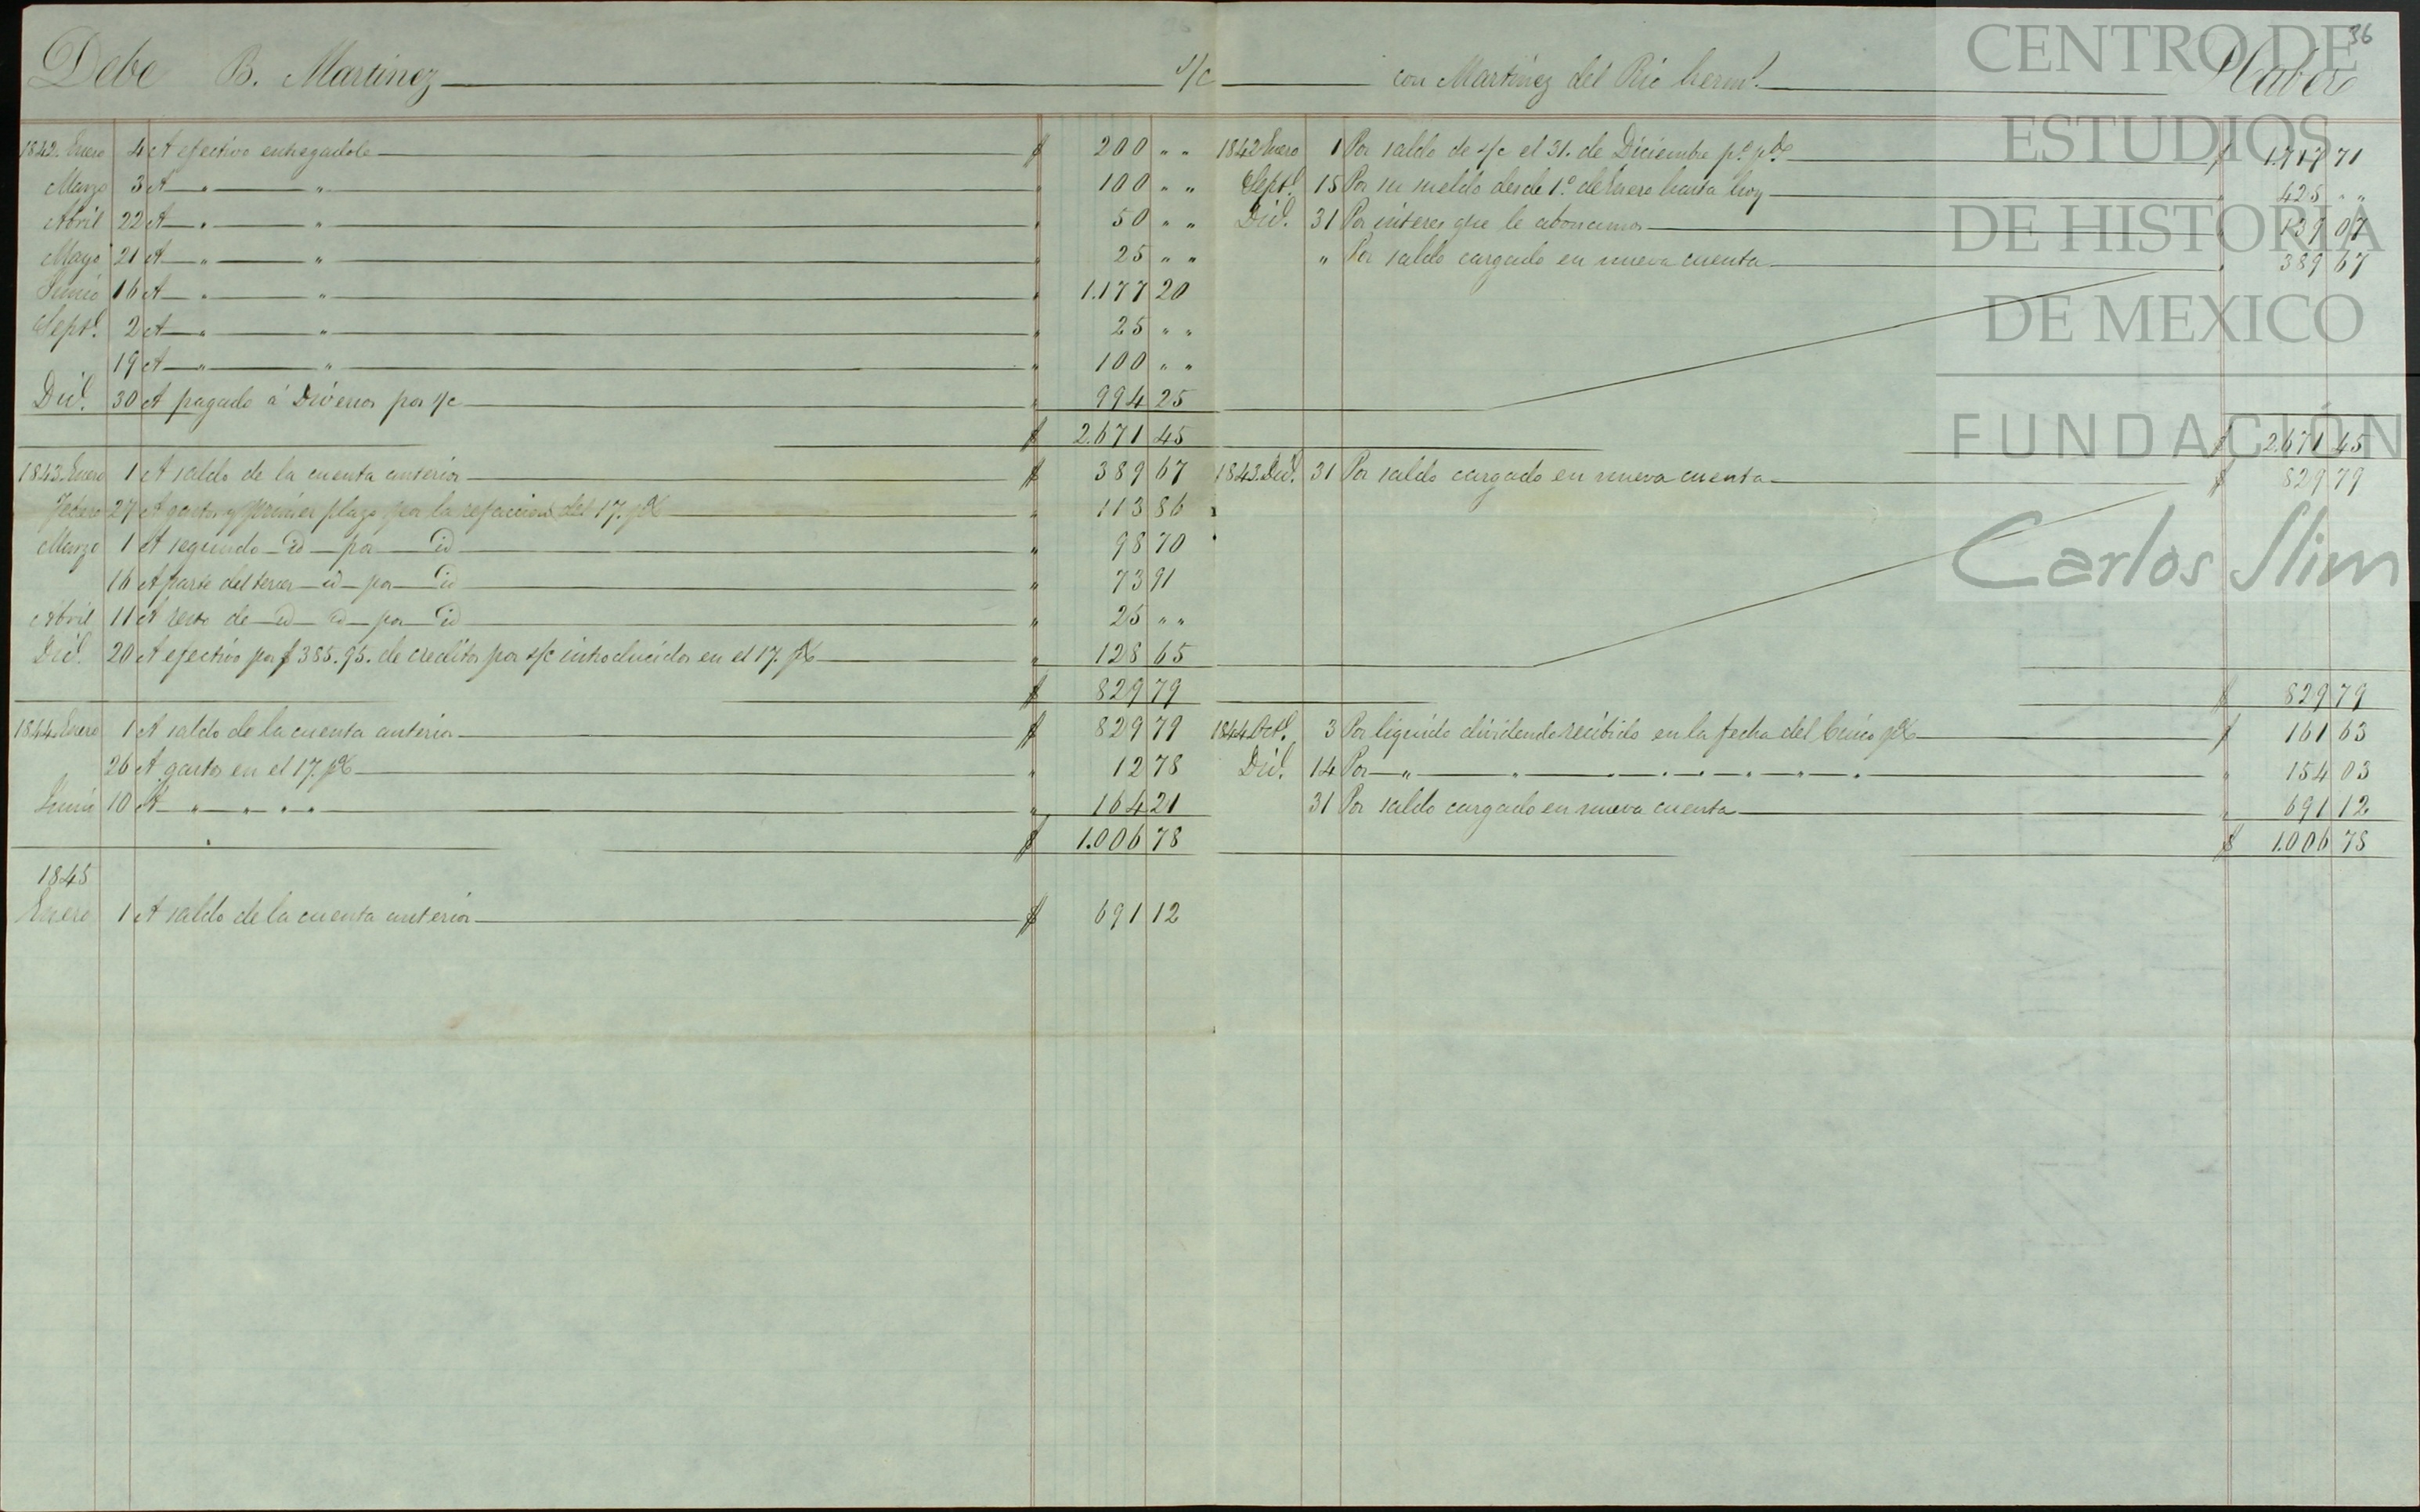 36
Debe B. Martinez s/c con Martinez del Rio herms. Haber
1842. Enero 4 A efectivo entregadole $ 200 " "
Marzo 3 A " " " 100 " "
Abril 22 A " " " 50 " "
Mayo 21 A " " " 25 " "
Junio 16 A " " " 1.177 20
Septe. 2 A " " " 25 " "
19 A " " " 100 " "
Dice. 30 A pagado á Diversos por s/c " 994 25
$ 2.671 45
1843. Enero 1 A saldo de la cuenta anterior $ 389 67
Febrero 27 A gastos y primer plazo por la refaccion del 17. p% " 113 86
Marzo 1 A segundo id por id " 98 70
16 A parte del tercer id por id " 73 91
Abril 11 A resto de id id por id " 25 " "
Dice. 20 A efectivo por $ 385.95. de creditos por s/c introducidos en el 17. p% " 128 65
$ 829 79
1844. Enero 1 A saldo de la cuenta anterior $ 829 79
26 A gastos en el 17. p% " 12 78
Junio 10 A " " " " " 164 21
$ 1.006 78
1845
Enero 1 A saldo de la cuenta anterior $ 691 12
1842 Enero 1 Por saldo de s/c el 31. de Diciembre po. po. $ 1.717 71
Septe. 15 Por su sueldo desde 1o. de Enero hasta hoy " 425 " "
Dice. 31 Por interes que le abonamos " 139 07
" Por saldo cargado en nueva cuenta " 389 67
$ 2.671 45
1843. Dice. 31 Por saldo cargado en nueva cuenta $ 829 79
$ 829 79
1844 Octe. 3 Por liquido dividendo recibido en la fecha del Cinco p% $ 161 63
Dice. 14 Por " " " " " " " " 154 03
31 Por saldo cargado en nueva cuenta " 691 12
$ 1.006 78
CENTRO DE
ESTUDIOS
DE HISTORIA
DE MEXICO
FUNDACIÓN
Carlos Slim